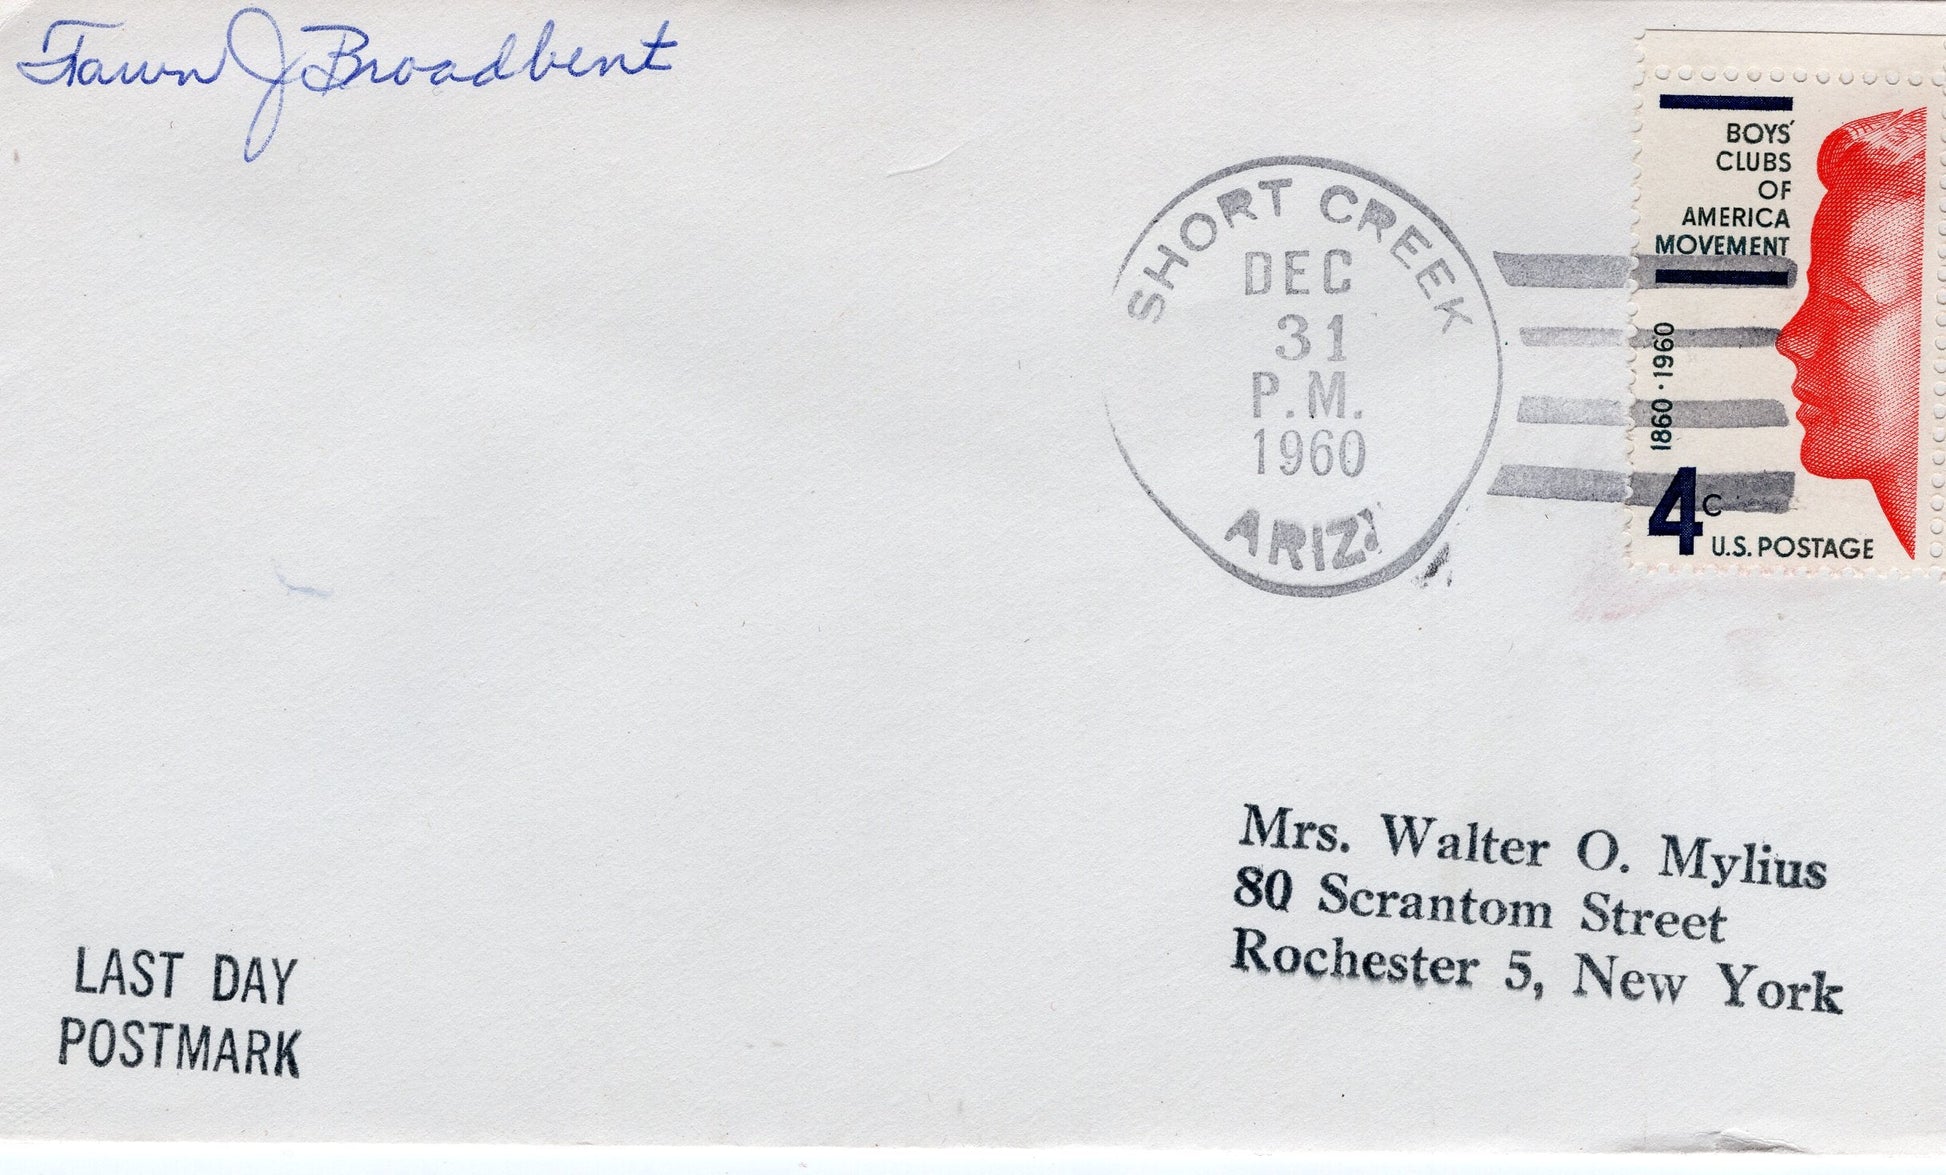 Fawn J Broadbent
BOYS'
CLUBS
OF
AMERICA
MOVEMENT
1860 · 1960
4c
U.S. POSTAGE
SHORT CREEK
DEC
31
P.M.
1960
ARIZ
Mrs. Walter O. Mylius
80 Scrantom Street
Rochester 5, New York
LAST DAY
POSTMARK